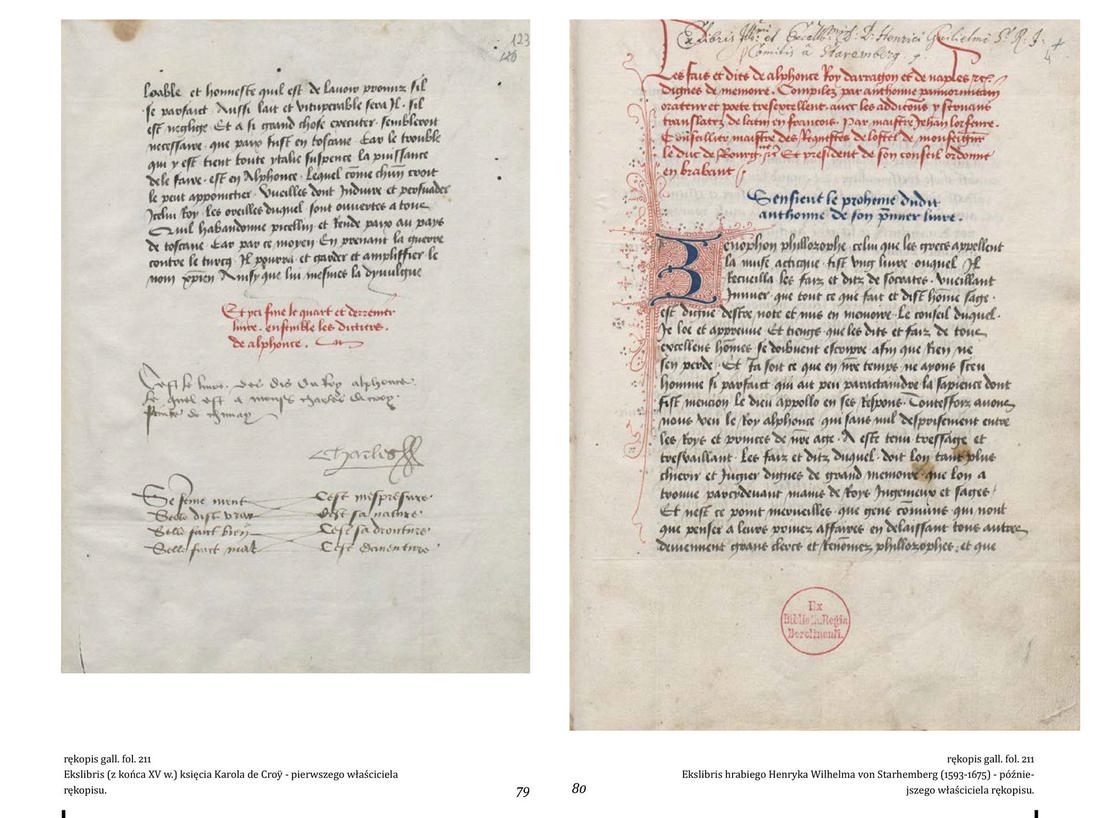 123
loable et honneste quil est de lavoir promis sil
se parfait Aussi lait et vituperable sera Il. sil
est neglige Et a si grand chose executer. sembleroit
necessaire que paix fust en toscane Car le trouble
qui y est tient toute ytalie suspence la puissance
dele faire. est en Alphonce. lequel come chun croit
le peut appointier. Vueilles dont Induire et persuader
Icelui Roy. les oreilles duquel sont ouvertes a tous
Quil habandonne picellin et Rende paix au pays
de toscane Car par ce moyen En prenant la guerre
contre le turcq. Il pourra et garder et amplifier le
nom xpien Ainsy que lui mesmes la dyvulgue
Et yci fine le quart et derrenier
livre. ensemble les dictiers.
de alphonce.
Cest le livre. des dis du Roy alphonce.
le quel est a monsr charles de croy.
prince de chimay
Charles
Se feme ment Cest mespresure
Selle dist vray Cest sa nature
Selle fait bien Cest sa droiture
Selle fait mal Cest daventure
rękopis gall. fol. 211
Ekslibris (z końca XV w.) księcia Karola de Croÿ - pierwszego właściciela
rękopisu.
79
Ex libris Illmi et Excellmi D. D. Henrici Guilielmi S. R. I.
Comitis à Staremberg.
4
Les fais et dits de alphonce Roy darragon et de naples
dignes de memoire. Compilez par anthoine panormitain
orateur et poete tresexcellent. avec les addicions y
translatez de latin en francois. Par maistre Jehan lorfevre.
Conseillier maistre des Requestes de lostel de monseigneur
le duc de Bourgne Et president de son conseil ordonne
en brabant
Sensieut le proheme dudit
anthoine de son pmier livre.
Zenophon philozophe celui que les grecs appellent
la muse acticque fist ung livre ouquel Il
Recueilla les faiz et ditz de socrates. vueillant
que tout ce que fait et dist home sage.
est digne destre note et mis en memoire. Le conseil duquel.
Je loe et appreuve Et tiengs que les dits et faiz de tous
excellens homes se doibvent escripre afin que Rien ne
sen perde. Et Ja soit ce que en nre temps ne ayons sceu
homme si parfait qui ait peu paractaindre la sapience dont
fist mention le dieu appollo en ses Respons. Toutesfoiz avons
nous veu le Roy alphonce qui sans nul desprisement entre
les Roys et princes de nre age. A este tenu tressage et
tresvaillant. Les faiz et ditz duquel. doit lon tant plus
chierir et Jugier dignes de grand memoire que lon a
trouve parcydevant mains de Roys Ingenieux et sages.
Et nest ce point merveilles que gens comuns qui nont
que penser a leurs privez affaires en delaissant tous autres
deviennent grans clercs et Renomez philozophes. et que
Ex
Biblioth. Regia
Berolinensi.
rękopis gall. fol. 211
Ekslibris hrabiego Henryka Wilhelma von Starhemberg (1593-1675) - późnie-
jszego właściciela rękopisu.
80